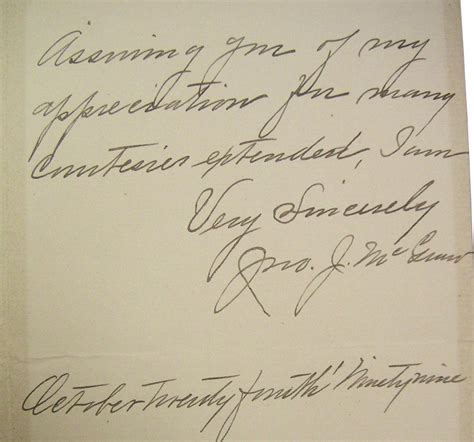 Assuring you of my
appreciation for many
courtesies extended, I am
Very Sincerely
Jno. J. McGraw
October twenty fourth' Ninetynine